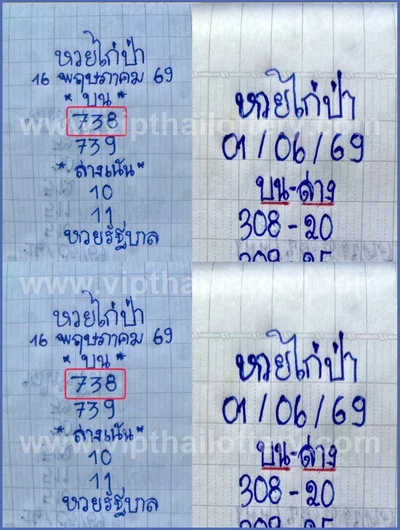 หวยไก่ป่า
16 พฤษภาคม 69
* บน *
738
739
* ล่างเน้น *
10
11
หวยรัฐบาล
www.vipthailottery.com
หวยไก่ป่า
01/06/69
บน-ล่าง
308-20
หวยไก่ป่า
16 พฤษภาคม 69
* บน *
738
739
* ล่างเน้น *
10
11
หวยรัฐบาล
หวยไก่ป่า
01/06/69
บน-ล่าง
308-20